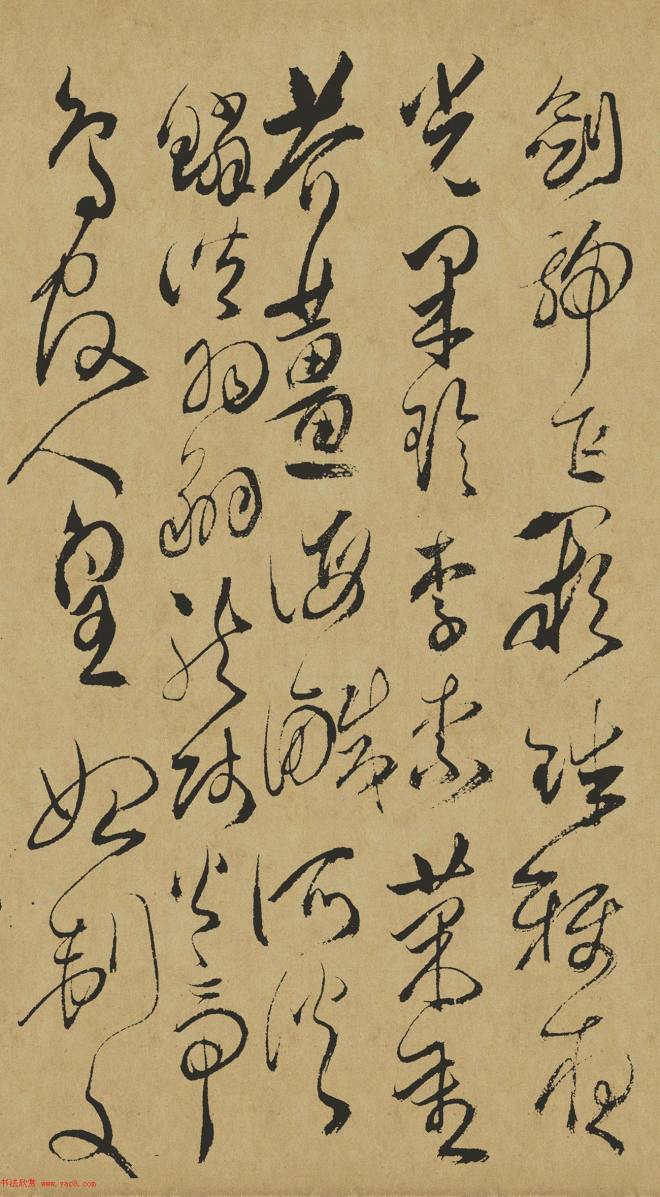 劍號巨闕珠稱夜
光果珍李柰菜重
芥薑海鹹河淡
鱗潛羽翔龍師火帝
鳥官人皇始制文
书法欣赏 www.yac8.com